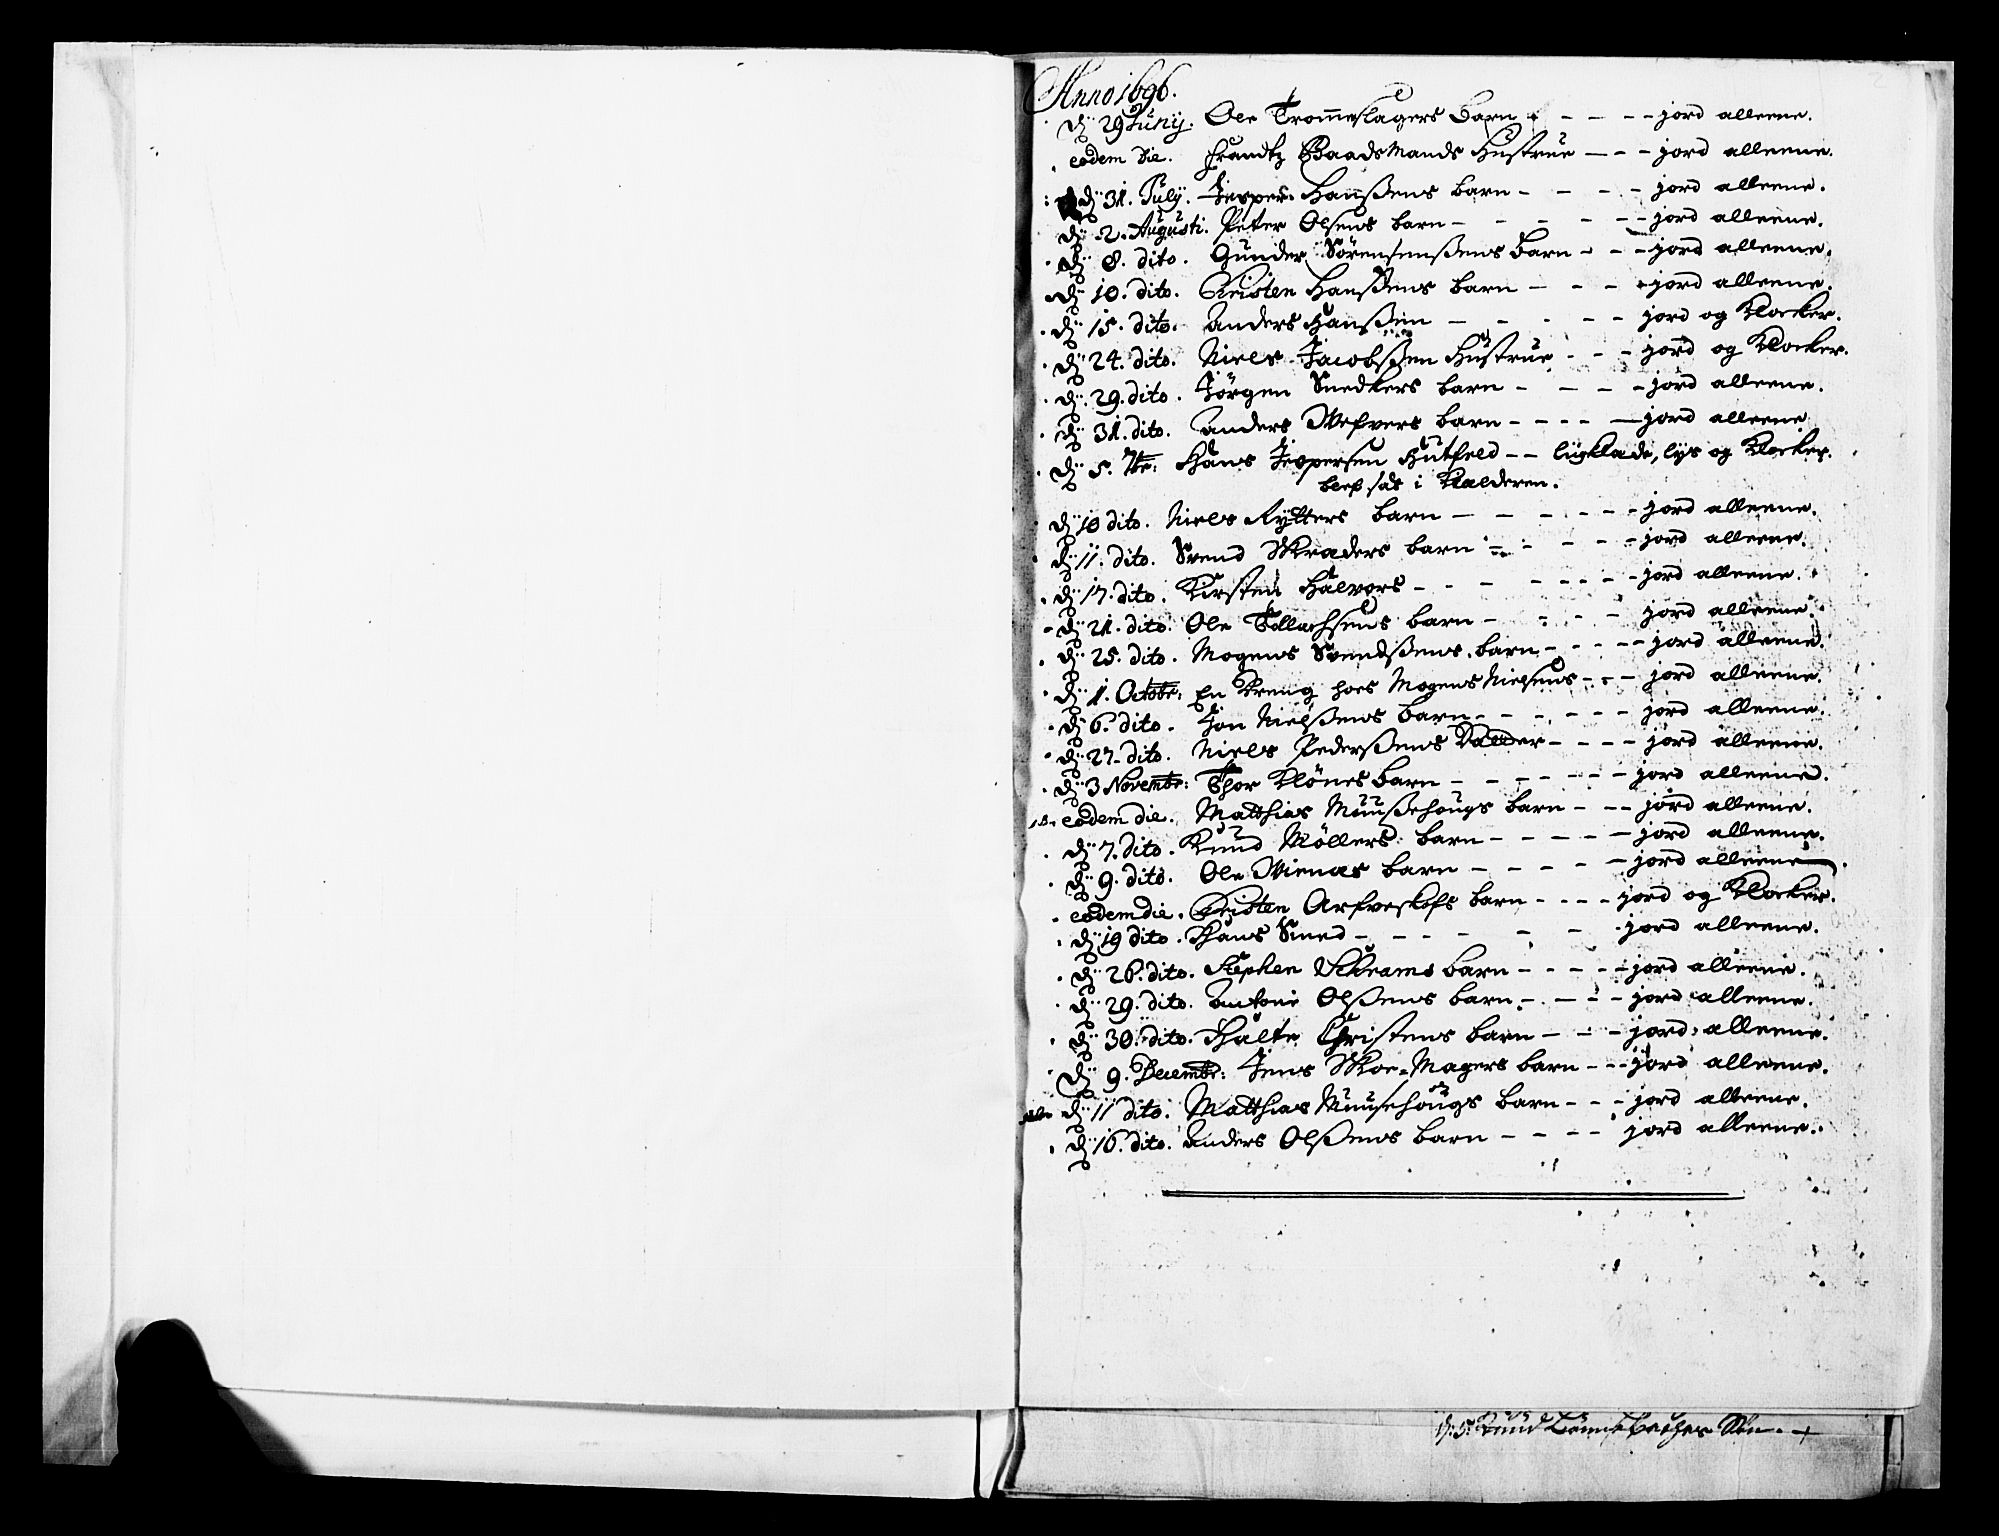 Anno 1696.
dÿ 29 Junij. Ole Trommeslagers Barn - - - - jord alleene.
eodem die. Frandtz Baadsmands Hustrue - - - jord alleene.
dÿ 31. Julÿ. Jesper Hanßens barn - - - - jord alleene.
dÿ 2. Augusti. Peter Olsens barn - - - - - jord alleene.
dÿ 8. dito. Gunder Sörensenßens barn - - - jord alleene.
dÿ 10. dito. Christen Hanßens barn - - - - jord alleene.
dÿ 15. dito. Anders Hanßen - - - - - jord og Klocker.
dÿ 24. dito. Niels Jacobßen Hustrue - - - jord og Klocker.
dÿ 29. dito. Jörgen Snedkers barn - - - - jord alleene.
dÿ 31. dito. Anders Wefvers barn - - - - jord alleene.
dÿ 5. 7br: Hans Jespersen Hutfeld - - ligklade, lys og Klocker.
blef sat i Kielderen.
dÿ 10 dito. Niels Rytters barn - - - - - - jord alleene.
dÿ 11. dito. Svend Skraders barn - - - - - jord alleene.
dÿ 17. dito. Kirsten Halvors - - - - - - - jord alleene.
dÿ 21. dito. Ole Tollachsens barn - - - - jord alleene.
dÿ 25. dito. Mogens Svendßens barn - - - - jord alleene.
dÿ 1. Octobr: En Dreng hoes Mogens Nielsens - - - jord alleene.
dÿ 6. dito. Jon Nielßens barn - - - - - - jord alleene.
dÿ 27. dito. Niels Pederßens Datter - - - - jord alleene.
dÿ 3 Novembr: Thor Klönes barn - - - - - - jord alleene.
eodem die. Matthias Muußehougs barn - - - jord alleene.
dÿ 7. dito. Knud Möllers barn - - - - - jord alleene.
dÿ 9. dito. Ole barn - - - - - jord alleene.
eodem die. Christen Arfveskofs barn - - - - jord og Klocker.
dÿ 19 dito. Hans Smed - - - - - - jord alleene.
dÿ 26. dito. Stephen Schrams barn - - - - - jord alleene.
dÿ 29. dito. Antoni Olßens barn - - - - jord alleene.
dÿ 30. dito. Halte Christens barn - - - jord alleene.
dÿ 9. Decembr: Jens Skoe-Magers barn - - - jord alleene.
dÿ 11 dito. Matthias Muusehougs barn - - - jord alleene.
dÿ 16. dito. Anders Olßens barn - - - - jord alleene.
d: 5. Knud Sön. +